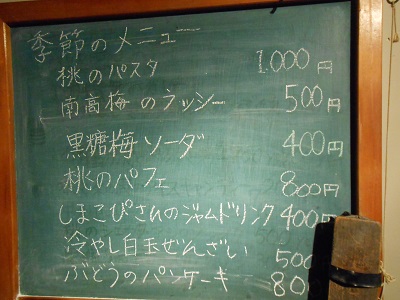 季節のメニュー
桃のパスタ 1.000円
南高梅のラッシー 500円
黒糖梅ソーダ 400円
桃のパフェ 800円
しまこぴさんのジャムドリンク 400円
冷やし白玉ぜんざい 500
ぶどうのパンケーキ 80